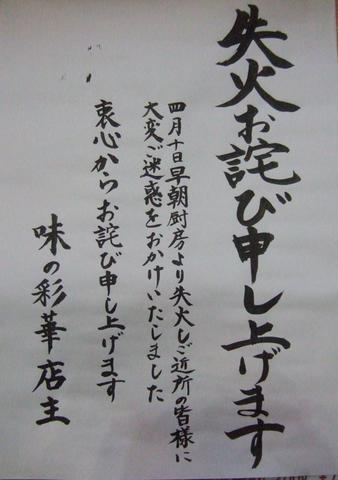 失火お詫び申し上げます
四月十日早朝厨房より失火しご近所の皆様に
大変ご迷惑をおかけいたしました
衷心からお詫び申し上げます
味の彩華店主